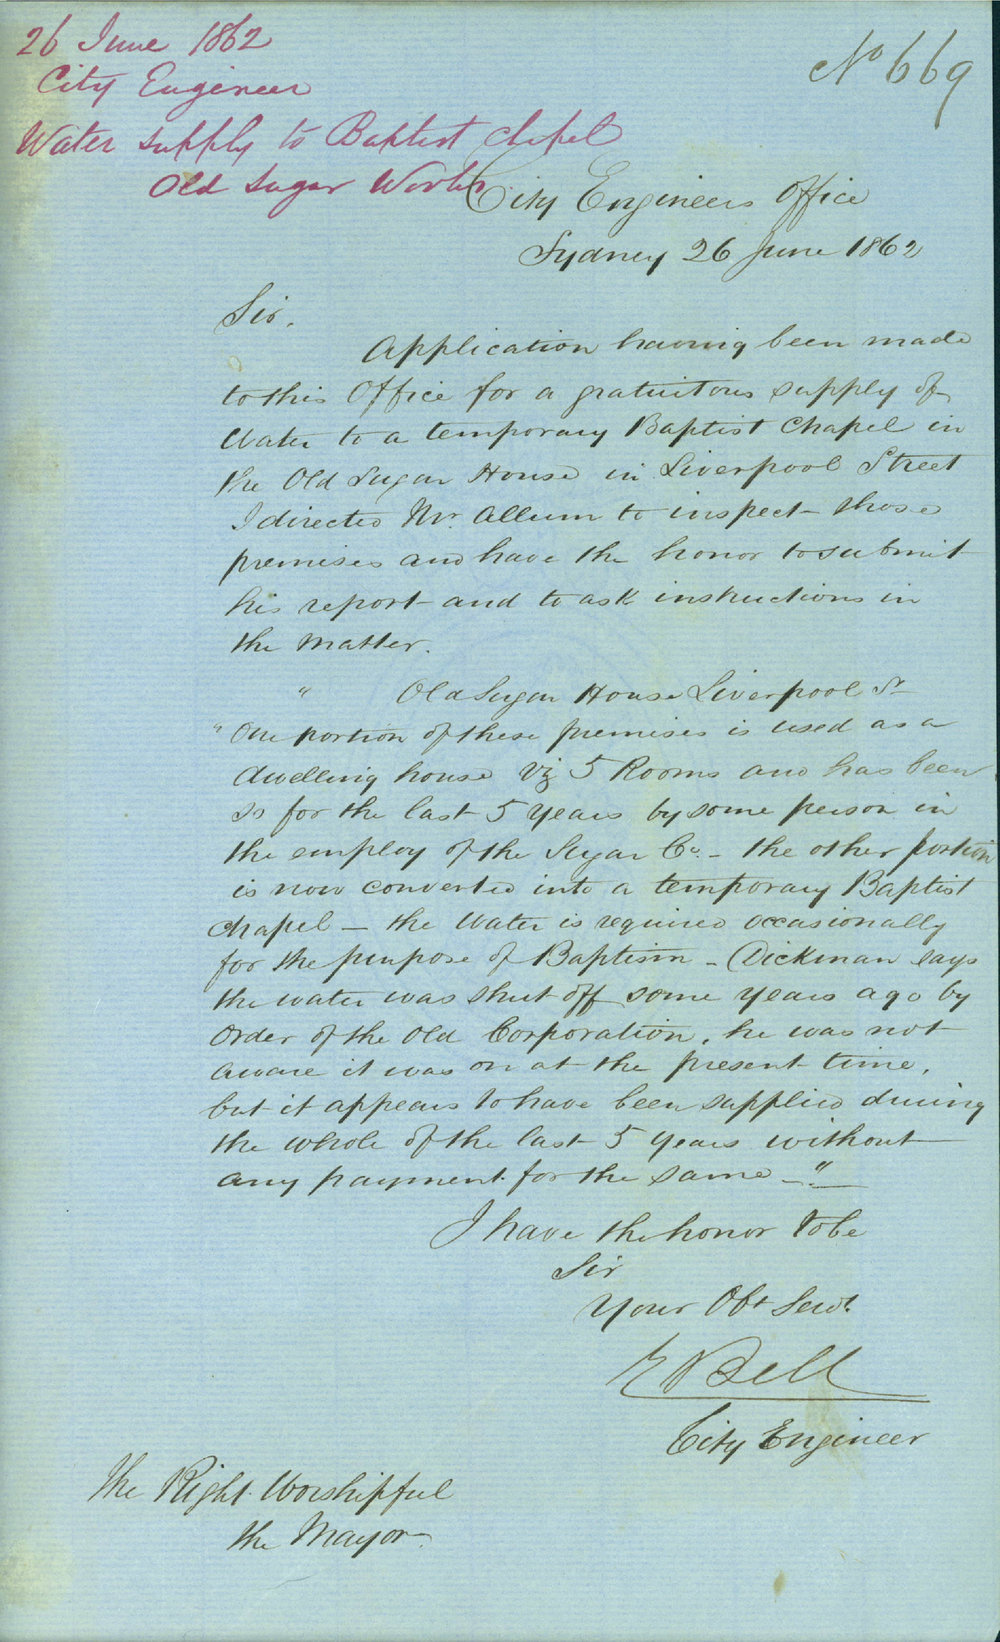 26 June 1862
City Engineer
Water supply to Baptist Chapel
Old Sugar Works
No 669
City Engineers Office
Sydney 26 June 1862
Sir.
Application having been made
to this Office for a gratuitous supply of
Water to a temporary Baptist Chapel in
the Old Sugar House in Liverpool Street
I directed Mr. Allum to inspect those
premises and have the honor to submit
his report and to ask instructions in
the matter.
" Old Sugar House Liverpool St
"One portion of these premises is used as a
dwelling house viz 5 Rooms and has been
so for the last 5 years by some person in
the employ of the Sugar Co. - the other portion
is now converted into a temporary Baptist
Chapel - the Water is required occasionally
for the purpose of Baptism - Dickman says
the water was shut off some years ago by
order of the Old Corporation, he was not
aware it was on at the present time,
but it appears to have been supplied during
the whole of the last 5 years without
any payment for the same - "
I have the honor to be
Sir
Your Obt Servt.
E Bell
City Engineer
The Right Worshipful
the Mayor